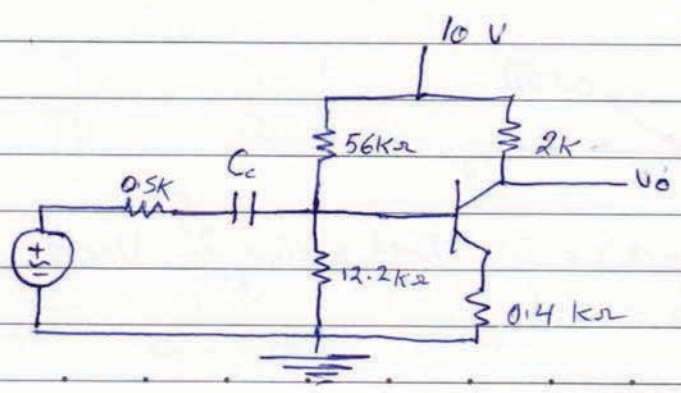 10 V
56kΩ
2k
Cc
0.5k
Vo
+
12.2kΩ
0.4 kΩ